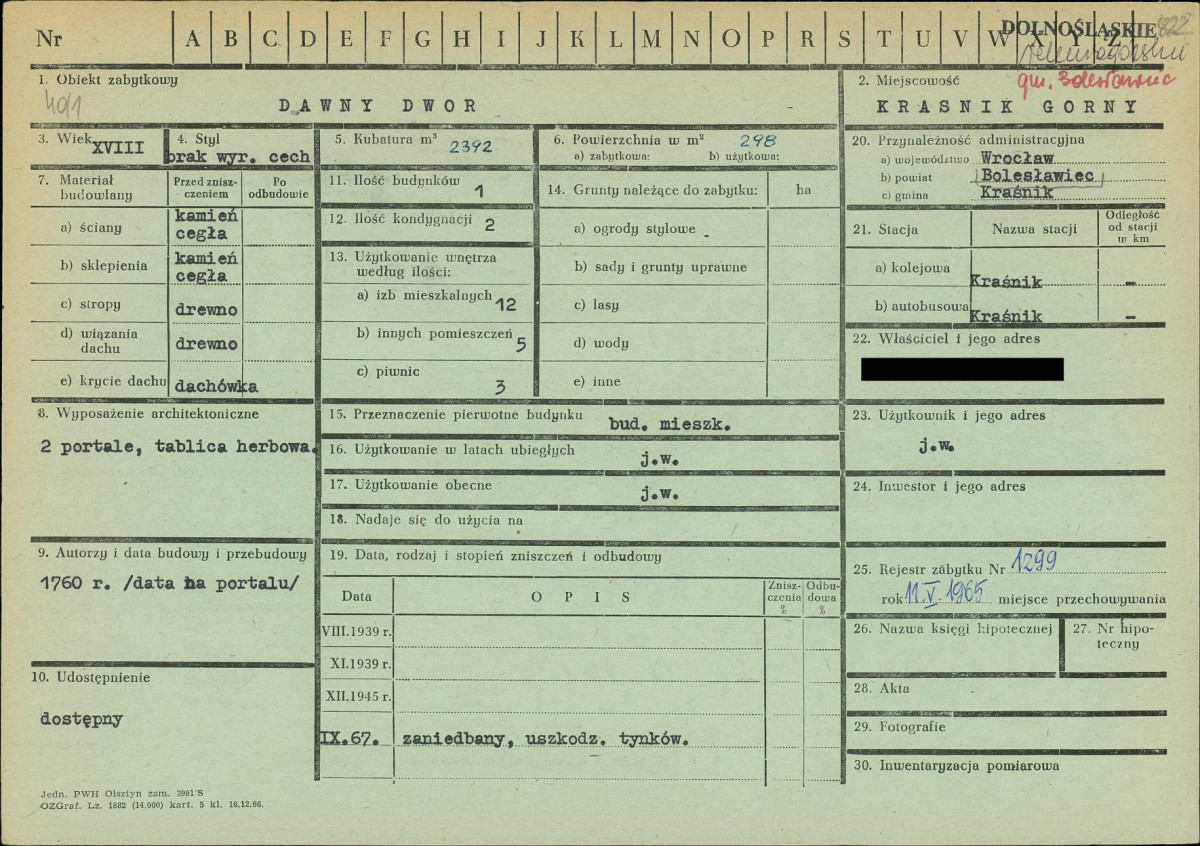 Nr A B C D E F G H I J K L M N O P R S T U V W X Y Z
DOLNOŚLĄSKIE
gm. Bolesławiec
1. Obiekt zabytkowy
40/1
DAWNY DWOR
2. Miejscowość
KRAŚNIK GORNY
3. Wiek XVIII
4. Styl
brak wyr. cech
5. Kubatura m³ 2392
6. Powierzchnia w m² 298
a) zabytkowa: b) użytkowa:
7. Materiał budowlany
Przed zniszczeniem
Po odbudowie
a) ściany kamień cegła
b) sklepienia kamień cegła
c) stropy drewno
d) wiązania dachu drewno
e) krycie dachu dachówka
8. Wyposażenie architektoniczne
2 portale, tablica herbowa.
9. Autorzy i data budowy i przebudowy
1760 r. /data na portalu/
10. Udostępnienie
dostępny
11. Ilość budynków 1
12. Ilość kondygnacji 2
13. Użytkowanie wnętrza według ilości:
a) izb mieszkalnych 12
b) innych pomieszczeń 5
c) piwnic 3
14. Grunty należące do zabytku: ha
a) ogrody stylowe
b) sady i grunty uprawne
c) lasy
d) wody
e) inne
15. Przeznaczenie pierwotne budynku bud. mieszk.
16. Użytkowanie w latach ubiegłych j.w.
17. Użytkowanie obecne j.w.
18. Nadaje się do użycia na
19. Data, rodzaj i stopień zniszczeń i odbudowy
Data OPIS Zniszczenia % Odbudowa %
VIII.1939 r.
XI.1939 r.
XII.1945 r.
IX.67. zaniedbany, uszkodz. tynków.
20. Przynależność administracyjna
a) województwo Wrocław
b) powiat Bolesławiec
c) gmina Kraśnik
21. Stacja Nazwa stacji Odległość od stacji w km
a) kolejowa Kraśnik –
b) autobusowa Kraśnik –
22. Właściciel i jego adres
23. Użytkownik i jego adres
j.w.
24. Inwestor i jego adres
25. Rejestr zabytku Nr 1299
rok 11.V.1965 miejsce przechowywania
26. Nazwa księgi hipotecznej
27. Nr hipoteczny
28. Akta
29. Fotografie
30. Inwentaryzacja pomiarowa
Jedn. PWH Olsztyn zam. 3991 S
OZGraf. Lz. 1882 (14.000) kart. 5 kl. 16.12.66.